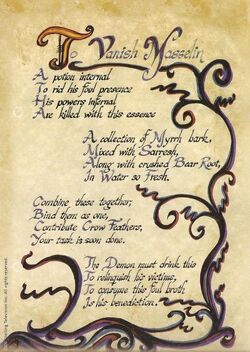 To Vanish Masselin
A potion internal
To rid his foul presence
His powers infernal
Are killed with this essence
A collection of Myrrh bark,
Mixed with Sarresh,
Along with crushed Bear Root,
In Water so Fresh.
Combine these together;
Bind them as one,
Contribute Crow Feathers,
Your task is soon done.
The Demon must drink this
To relinquish his victims,
To consume this foul broth
Is his benediction.
Television Inc. All rights reserved.